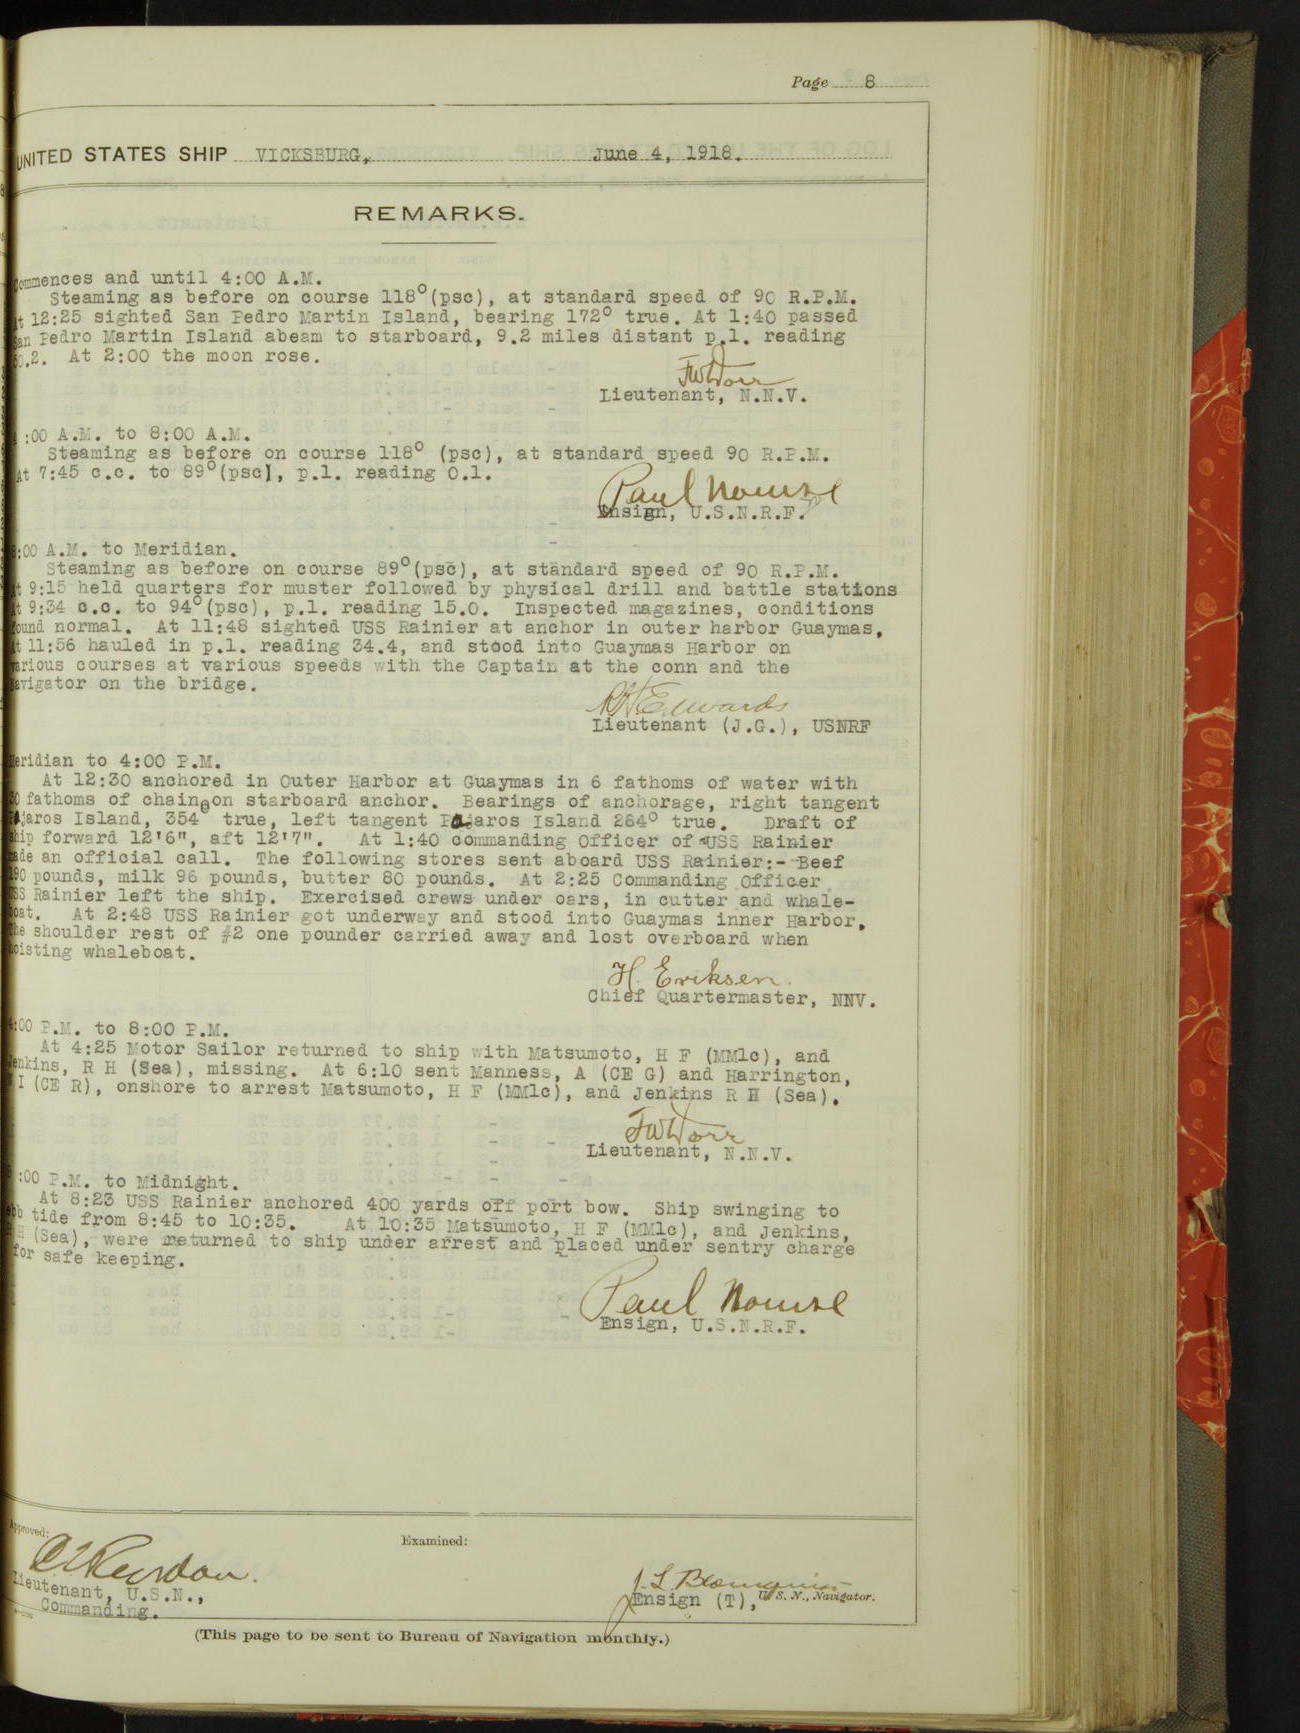 Page 8
UNITED STATES SHIP VICKSBURG, June 4, 1918.
REMARKS.
Commences and until 4:00 A.M.
Steaming as before on course 118°(psc), at standard speed of 90 R.P.M.
At 12:25 sighted San Pedro Martin Island, bearing 172° true. At 1:40 passed
San Pedro Martin Island abeam to starboard, 9.2 miles distant p.l. reading
60.2. At 2:00 the moon rose.
FWDorr
Lieutenant, N.N.V.
4:00 A.M. to 8:00 A.M.
Steaming as before on course 118° (psc), at standard speed 90 R.P.M.
At 7:45 c.c. to 89°(psc), p.l. reading 0.1.
Paul Nourse
Ensign, U.S.N.R.F.
8:00 A.M. to Meridian.
Steaming as before on course 89°(psc), at standard speed of 90 R.P.M.
At 9:15 held quarters for muster followed by physical drill and battle stations
At 9:34 c.c. to 94°(psc), p.l. reading 15.0. Inspected magazines, conditions
found normal. At 11:48 sighted USS Rainier at anchor in outer harbor Guaymas,
At 11:56 hauled in p.l. reading 34.4, and stood into Guaymas Harbor on
various courses at various speeds with the Captain at the conn and the
Navigator on the bridge.
RHEdwards
Lieutenant (J.G.), USNRF
Meridian to 4:00 P.M.
At 12:30 anchored in Outer Harbor at Guaymas in 6 fathoms of water with
30 fathoms of chain on starboard anchor. Bearings of anchorage, right tangent
Pajaros Island, 354° true, left tangent Pajaros Island 264° true. Draft of
ship forward 12'6", aft 12'7". At 1:40 commanding Officer of USS Rainier
made an official call. The following stores sent aboard USS Rainier:- Beef
190 pounds, milk 96 pounds, butter 80 pounds. At 2:25 Commanding Officer
USS Rainier left the ship. Exercised crews under oars, in cutter and whale-
boat. At 2:48 USS Rainier got underway and stood into Guaymas inner Harbor.
The shoulder rest of #2 one pounder carried away and lost overboard when
hoisting whaleboat.
H. Eriksen.
Chief Quartermaster, NNV.
4:00 P.M. to 8:00 P.M.
At 4:25 Motor Sailor returned to ship with Matsumoto, H F (MM1c), and
Jenkins, R H (Sea), missing. At 6:10 sent Manness, A (CE G) and Harrington,
I (CE R), onshore to arrest Matsumoto, H F (MM1c), and Jenkins R H (Sea).
FWDorr
Lieutenant, N.N.V.
8:00 P.M. to Midnight.
At 8:23 USS Rainier anchored 400 yards off port bow. Ship swinging to
ebb tide from 8:45 to 10:35. At 10:35 Matsumoto, H F (MM1c), and Jenkins,
R H (Sea), were returned to ship under arrest and placed under sentry charge
for safe keeping.
Paul Nourse
Ensign, U.S.N.R.F.
Approved:
Examined:
Lieutenant, U.S.N.,
Commanding.
Ensign (T), U. S. N., Navigator.
(This page to be sent to Bureau of Navigation monthly.)